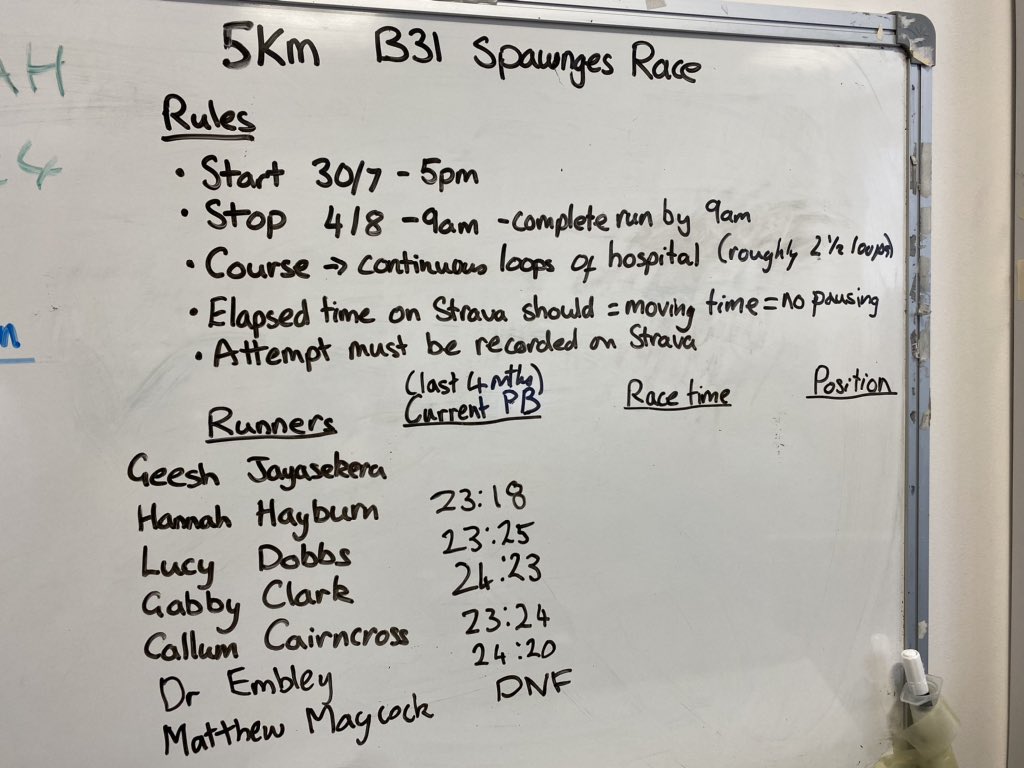 5Km B31 Spawnges Race
Rules
• Start 30/7 - 5pm
• Stop 4/8 - 9am - complete run by 9am
• Course → continuous loops of hospital (roughly 2 ½ loops)
• Elapsed time on Strava should = moving time = no pausing
• Attempt must be recorded on Strava
(last 4 mths)
Runners Current PB Race time Position
Geesh Jayasekera
Hannah Hayburn 23:18
Lucy Dobbs 23:25
Gabby Clark 24:23
Callum Cairncross 23:24
Dr Embley 24:20
Matthew Maycock DNF